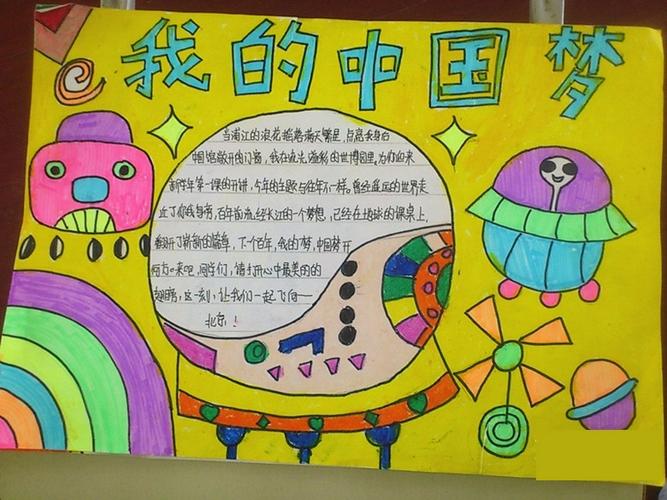 我的中国梦
当浦江的浪花摇着满天繁星,点亮
中国馆敞开的门窗,我在流光溢彩的世博园里,为你迎来
新学年第一课的开讲,今年的主题与往年不一样。曾经遥远的世界走
近了你我身旁,百年前流经长江的一个梦想,已经在地球的课桌上,
翻开了崭新的篇章,下个百年,我的梦,中国梦
何方?来吧,同学们,请打开心中最美的
翅膀,这一刻,让我们一起飞向——
北京!